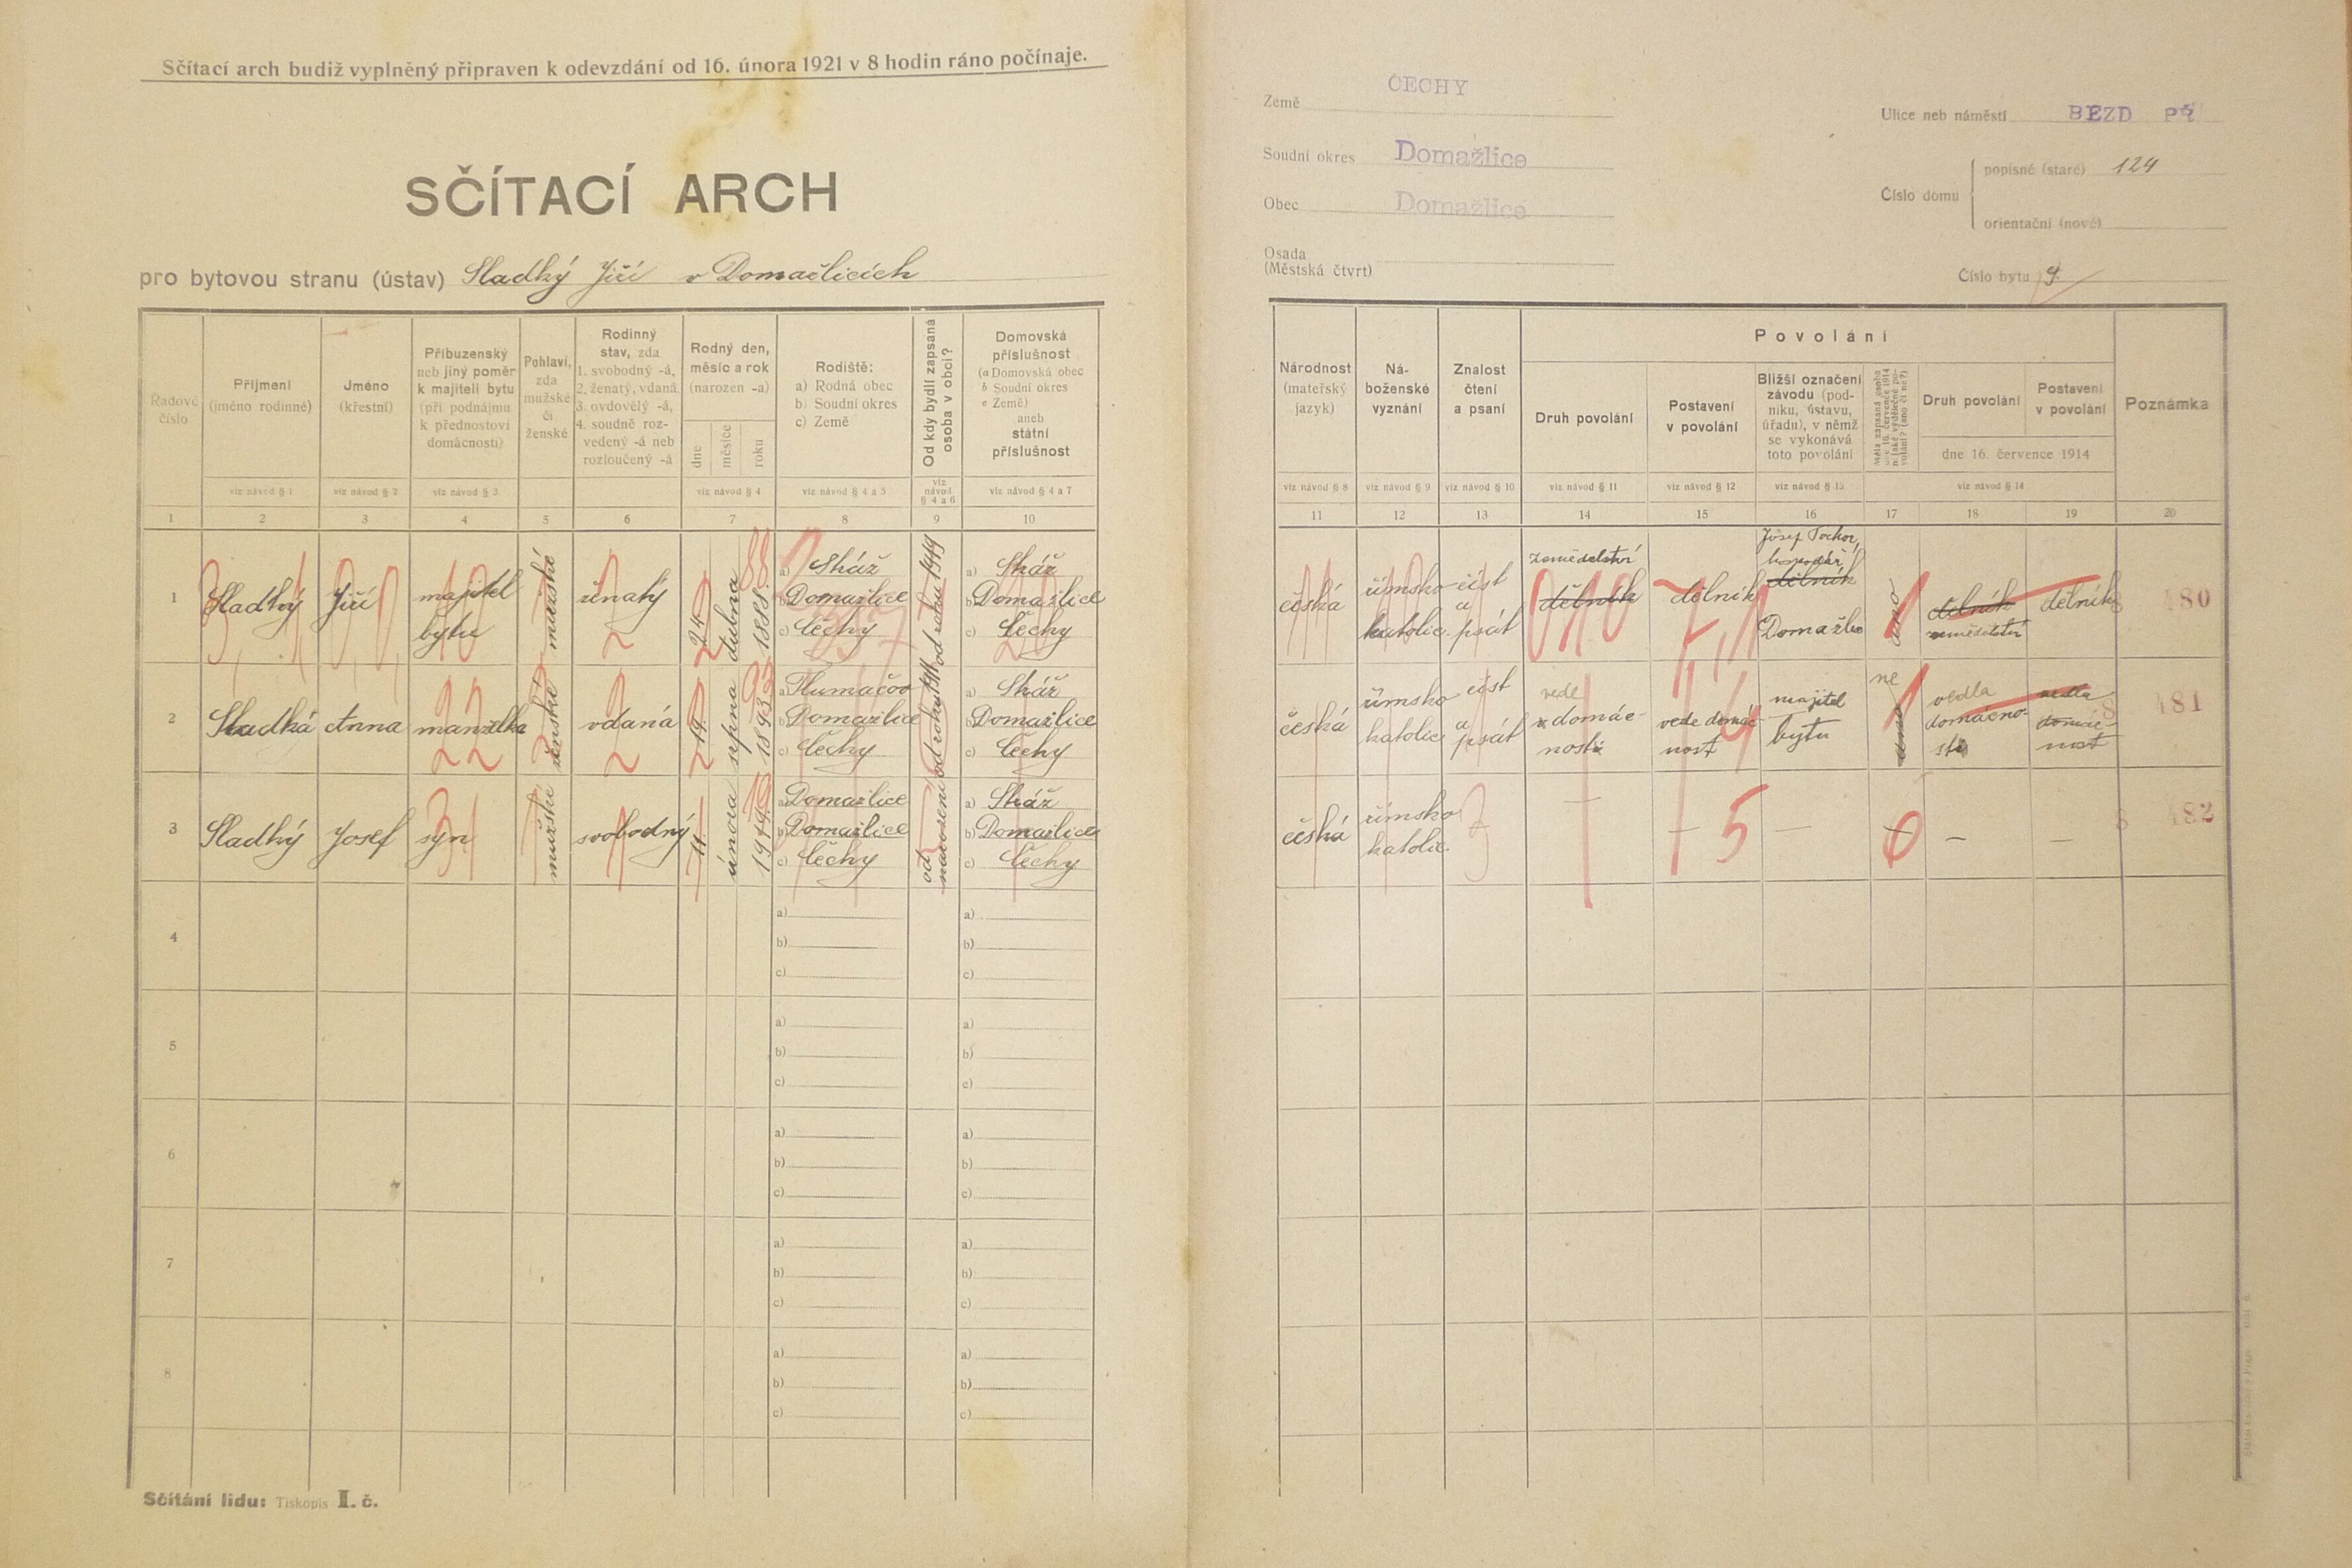 Sčítací arch budiž vyplněný připraven k odevzdání od 16. února 1921 v 8 hodin ráno počínaje.
SČÍTACÍ ARCH
pro bytovou stranu (ústav) Sladký Jiří v Domažlicích
Země ČECHY
Soudní okres Domažlice
Obec Domažlice
Osada
(Městská čtvrť)
Ulice neb náměstí BEZD PŘ
Číslo domu
popisné (staré) 124
orientační (nové)
Číslo bytu 9.
Řadové číslo
Příjmení (jméno rodinné)
Jméno (křestní)
Příbuzenský neb jiný poměr k majiteli bytu (při podnájmu k přednostovi domácnosti)
Pohlaví, zda mužské či ženské
Rodinný stav, zda 1. svobodný -á, 2. ženatý, vdaná 3. ovdovělý -á, 4. soudně rozvedený -á neb rozloučený -á
Rodný den, měsíc a rok (narozen -a)
dne měsíce roku
Rodiště: a) Rodná obec b) Soudní okres c) Země
Od kdy bydlí zapsaná osoba v obci?
Domovská příslušnost (a Domovská obec b Soudní okres c Země) aneb státní příslušnost
Národnost (mateřský jazyk)
Náboženské vyznání
Znalost čtení a psaní
Povolání
Druh povolání
Postavení v povolání
Bližší označení závodu (podniku, ústavu, úřadu), v němž se vykonává toto povolání
Druh povolání
Postavení v povolání
dne 16. července 1914
Poznámka
viz návod § 1 viz návod § 2 viz návod § 3 viz návod § 4 viz návod § 4 a 5 viz návod § 4 a 6 viz návod § 4 a 7
viz návod § 8 viz návod § 9 viz návod § 10 viz návod § 11 viz návod § 12 viz návod § 13 viz návod § 14
1 2 3 4 5 6 7 8 9 10
11 12 13 14 15 16 17 18 19 20
1 Sladký Jiří majitel bytu mužské ženatý 2 24. dubna 1888. 88
a) Sháž
b) Domažlice
c) Čechy
a) Sháž
b) Domažlice
c) Čechy
česká římsko katolic. číst a psát
zemědelství
dělník
dělník
Josef Tochor,
hospodář
dělník
Domažlice
ano
dělník
zemědelství
dělník
480
2 Sladká Anna manželka 22 ženské vdaná 2 19. srpna 1893 93
a) Tlumačov
b) Domažlice
c) Čechy
od roku 1911
a) Sháž
b) Domažlice
c) Čechy
česká římsko katolic číst a psát
vede
domácnost
vede domácnost
majitel bytu
ne
ano
vedla
domácnost
vedla
domácnost
481
3 Sladký Josef syn 31 mužské svobodný 1 11. února 1919. 19
a) Domažlice
b) Domažlice
c) Čechy
od narození
a) Sháž
b) Domažlice
c) Čechy
česká římsko katolic. 3
— — 5 — 0 — —
482
4
a)
b)
c)
a)
b)
c)
5
a)
b)
c)
a)
b)
c)
6
a)
b)
c)
a)
b)
c)
7
a)
b)
c)
a)
b)
c)
8
a)
b)
c)
a)
b)
c)
Sčítání lidu: Tiskopis I. č.